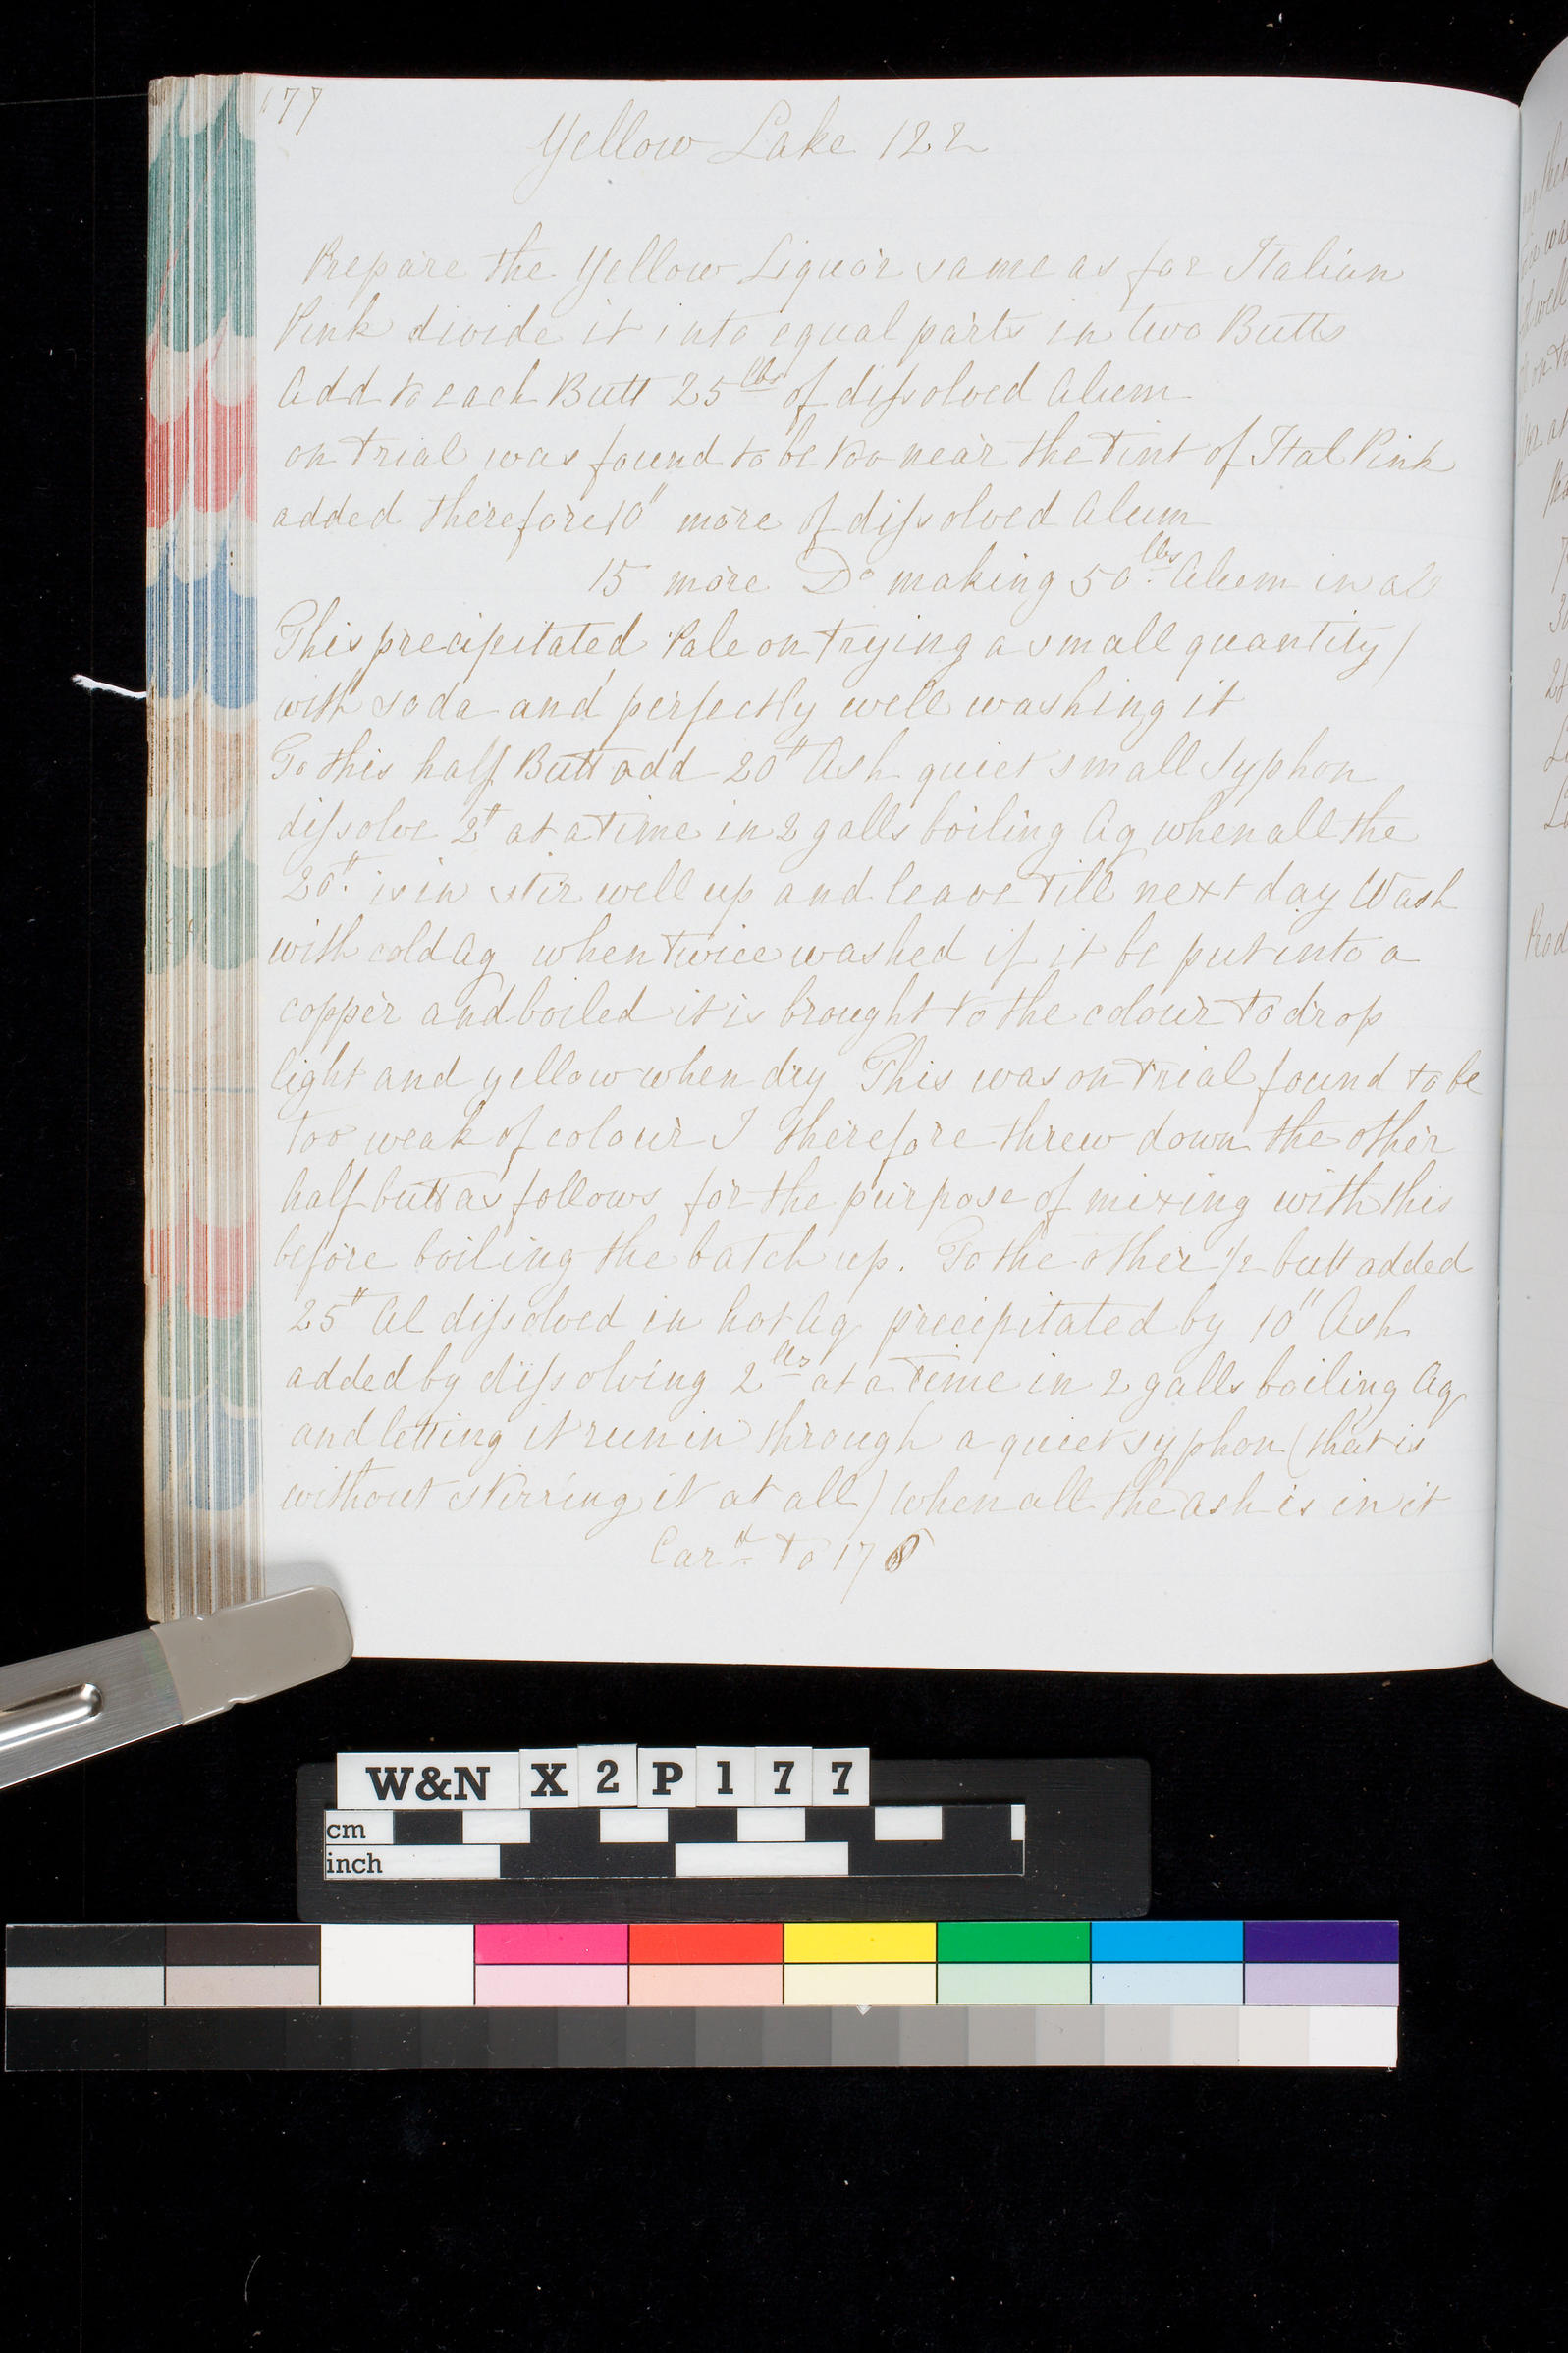 177
Yellow Lake 122
Prepare the Yellow Liquor same as for Italian
Pink divide it into equal parts in two Butts
Add to each Butt 25lbs of dissolved Alum
on trial was found to be too near the tint of Ital Pink
added therefore 10" more of dissolved Alum
15 more Do making 50lbs Alum in all
This precipitated Pale on trying a small quantity /
with soda and perfectly well washing it
To this half Butt add 20" Ash quiet small Syphon
dissolve 2" at a time in 2 galls boiling Aq when all the
20" is in stir well up and leave till next day Wash
with cold Aq when twice washed if it be put into a
copper and boiled it is brought to the colour to drop
light and yellow when dry This was on trial found to be
too weak of colour I therefore threw down the other
half butt as follows for the purpose of mixing with this
before boiling the batch up. To the other 1/2 butt added
25" Al dissolved in hot Aq precipitated by 10" Ash
added by dissolving 2lbs at a time in 2 galls boiling Aq
and letting it run in through a quiet syphon (that is
without stirring it at all) when all the ash is in it
Card to 178
W&N X 2 P 1 7 7
cm
inch